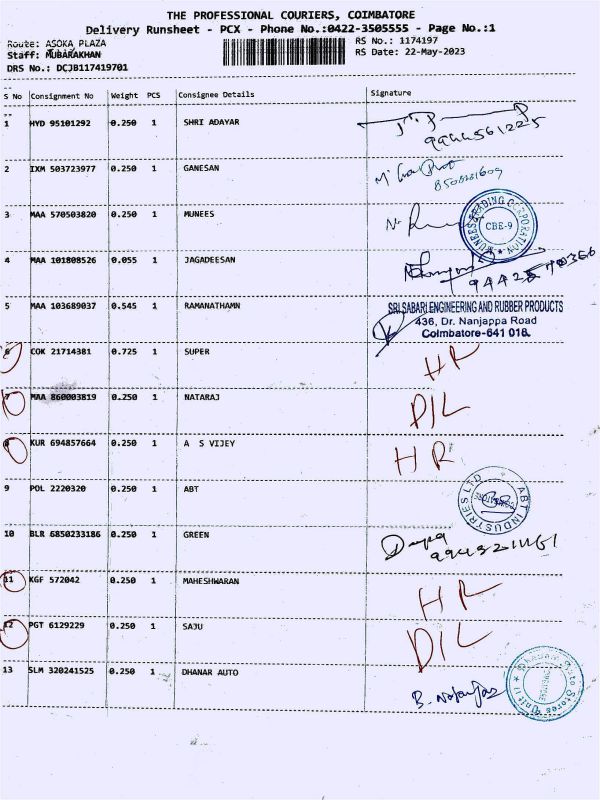 THE PROFESSIONAL COURIERS, COIMBATORE
Delivery Runsheet - PCX - Phone No.:0422-3505555 - Page No.:1
Route: ASOKA PLAZA
RS No.: 1174197
Staff: MUBARAKHAN
RS Date: 22-May-2023
DRS No.: DCJB117419701
S No Consignment No Weight PCS Consignee Details Signature
1 HYD 95101292 0.250 1 SHRI ADAYAR
9944561225
2 IXM 503723977 0.250 1 GANESAN
3 MAA 570503820 0.250 1 MUNEES
MUNEES TRADING CORPORATION
CBE-9
4 MAA 101808526 0.055 1 JAGADEESAN
5 MAA 103689037 0.545 1 RAMANATHAMN
SRI SABARI ENGINEERING AND RUBBER PRODUCTS
436, Dr. Nanjappa Road
Coimbatore-641 018.
6 COK 21714381 0.725 1 SUPER HR
7 MAA 860003819 0.250 1 NATARAJ DIL
8 KUR 694857664 0.250 1 A S VIJEY HR
9 POL 2220320 0.250 1 ABT
ABT INDUSTRIES LTD
10 BLR 6850233186 0.250 1 GREEN
Deepa
11 KGF 572042 0.250 1 MAHESHWARAN HR
12 PGT 6129229 0.250 1 SAJU DIL
13 SLM 320241525 0.250 1 DHANAR AUTO
Dhanam Auto Stores Unit II